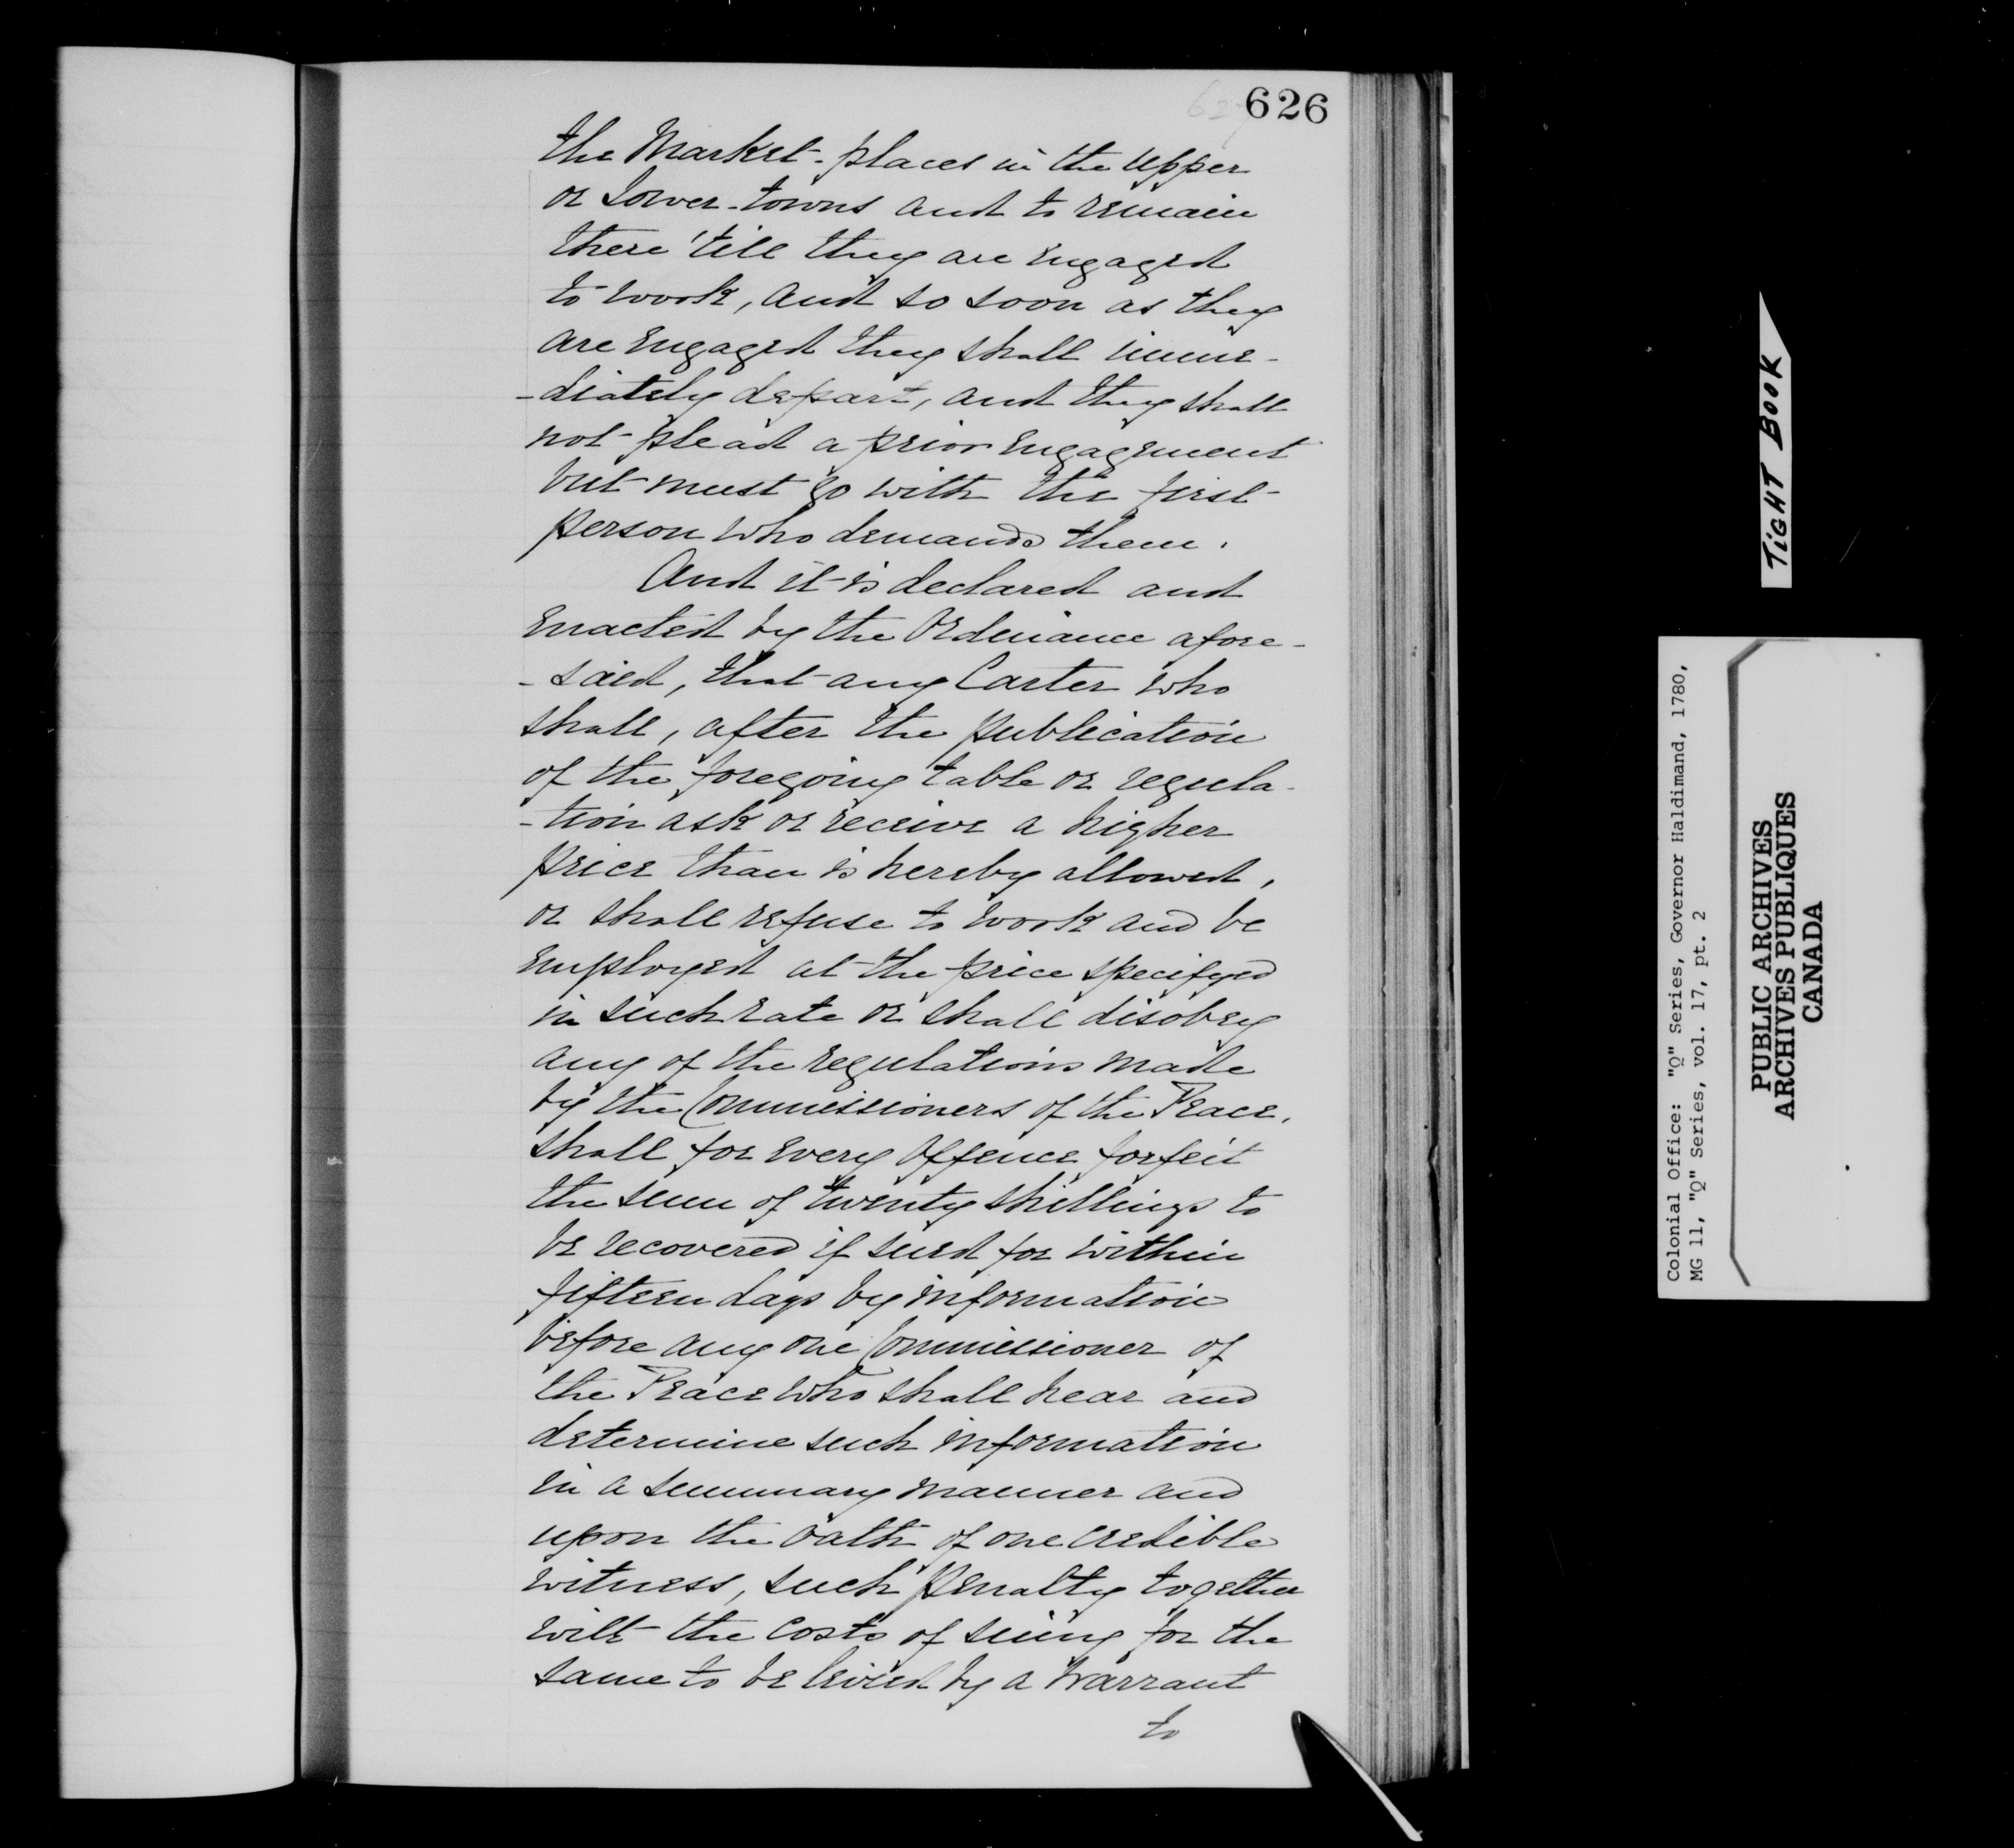 626
the Market-places in the Upper
or Lower-towns and to remain
there 'till they are engaged
to work, and so soon as they
are engaged they shall imme-
-diately depart, and they shall
not plead a prior engagement
but must go with the first
person who demands them.
And it is declared and
enacted by the Ordinance afore-
-said, that any Carter who
shall, after the publication
of the foregoing table or regula-
-tion ask or receive a higher
price than is hereby allowed,
or shall refuse to work and be
employed at the price specifyed
in such rate or shall disobey
any of the regulations made
by the Commissioners of the Peace,
shall for every offence forfeit
the sum of twenty shillings to
be recovered if sued for within
fifteen days by information
before any one Commissioner of
the Peace who shall hear and
determine such information
in a summary manner and
upon the oath of one credible
witness, such penalty together
with the costs of suing for the
same to be levied by a Warrant
to
TIGHT BOOK
Colonial Office: "Q" Series, Governor Haldimand, 1780,
MG 11, "Q" Series, vol. 17, pt. 2
PUBLIC ARCHIVES
ARCHIVES PUBLIQUES
CANADA